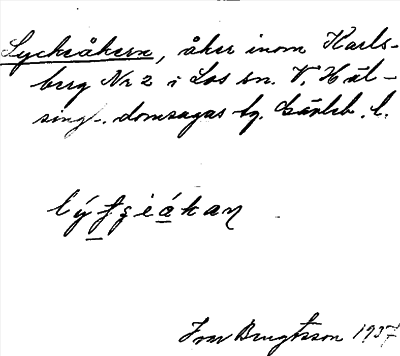 Lyckeåkern, åker inom Karls-
berg Nr 2 i Los sn. V. Häl-
singl. domsagas tg. Gävleb. l.
Ivar Bengtsson 1937